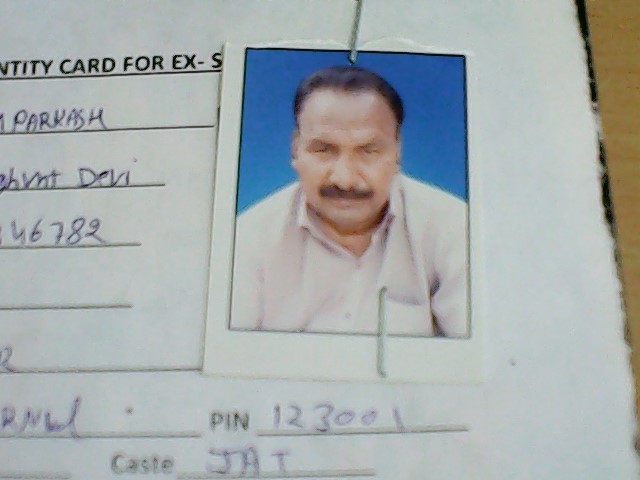 NTITY CARD FOR EX- S
PARKASH
Devi
46782
PIN 123001
Caste JAT